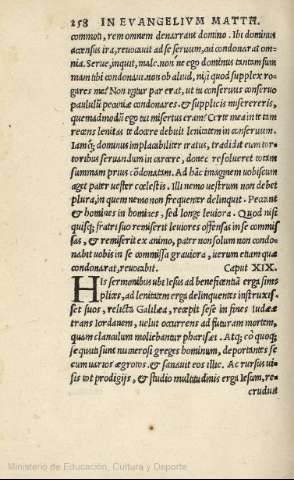 258 IN EVANGELIVM MATTH.
commoti, rem omnem denarrant domino. Ibi dominus
accensus ira, reuocauit ad se seruum, cui condonarat om-
nia. Serue, inquit, male. non ne ego dominus tantam sum
mam tibi condonaui. non ob aliud, nisi quod supplex ro-
gares me? Non igitur par erat, ut tu conseruus conseruo
paululũ pecuniæ condonares. & supplicis misereris,
quemadmodũ ego tui misertus eram? Certe mea in te tam
recens lenitas te docere debuit lenitatem in conseruum.
Iamq; dominus implacabiliter iratus, tradidit eum tor-
toribus seruandum in carcere, donec resolueret totam
summam prius cõdonatam. Ad hãc imaginem uobiscum
aget pater uester cœlestis. Illi nemo uestrum non debet
plura, in quem nemo non frequenter delinquit. Peccant
& homines in homines, sed longe leuiora. Quod nisi
quisq; fratri suo remiserit leuiores offensas in se commis
sas, & remiserit ex animo, pater non solum non condo-
nabit uobis in se commissa grauiora, uerum etiam quæ
condonarat, reuocabit. Caput XIX.
His sermonibus ubi Iesus ad beneficentiã erga sim-
plices, ad lenitatem erga delinquentes instruxis-
set suos, relicta Galilæa, recepit sese in fines Iudææ
trans Iordanem, uelut occurrens ad futuram mortem,
quam clanculum moliebantur pharisæi. Atq; eò quoq;
sequuti sunt numerosi greges hominum, deportantes se
cum uarios ægrotos. & sanauit eos illic. Ac rursus ui-
sis tot prodigijs, & studio multitudinis erga Iesum, re-
cruduit
Ministerio de Educación, Cultura y Deporte